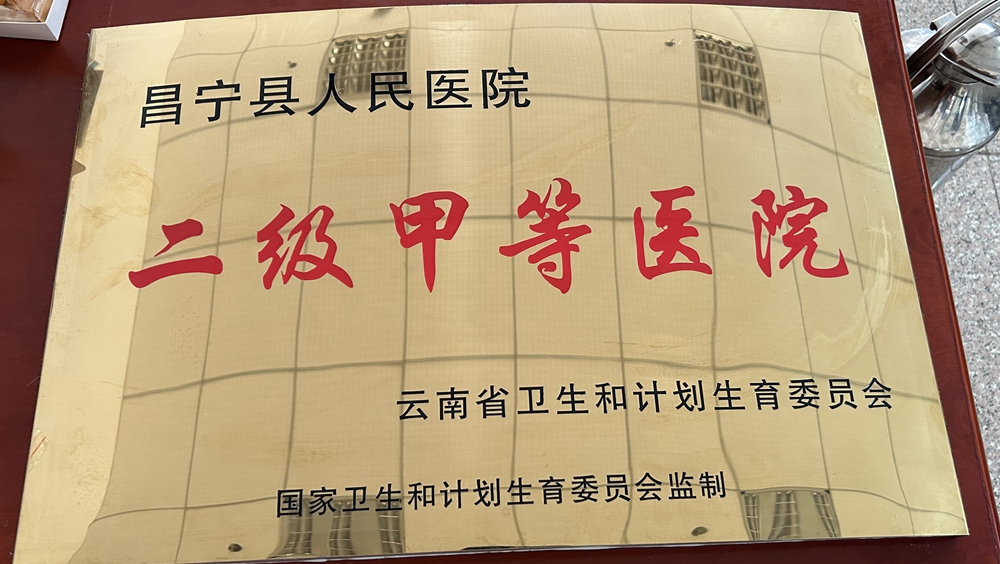 昌宁县人民医院
二级甲等医院
云南省卫生和计划生育委员会
国家卫生和计划生育委员会监制